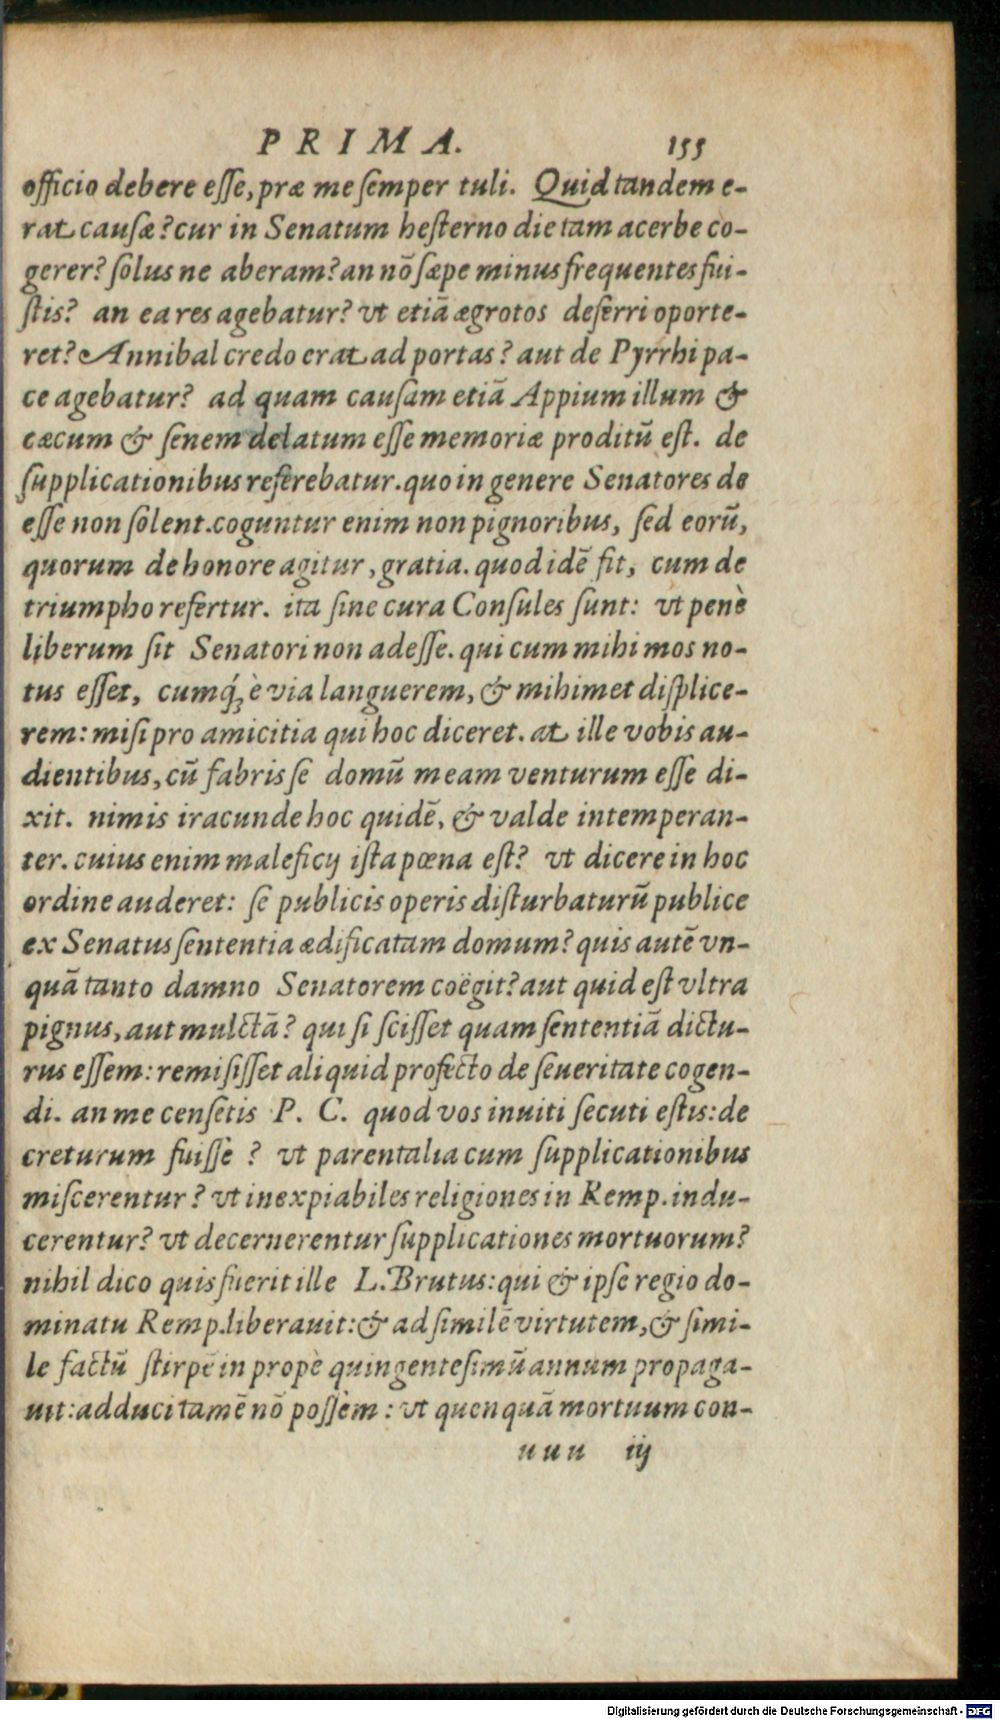 PRIMA. 155
officio debere eſſe, præ me ſemper tuli. Quid tandem e-
rat cauſæ? cur in Senatum heſterno die tam acerbe co-
gerer? ſolus ne aberam? an nõ ſæpe minus frequentes fui-
ſtis? an ea res agebatur? vt etiã ægrotos deferri oporte-
ret? Annibal credo erat ad portas? aut de Pyrrhi pa-
ce agebatur? ad quam cauſam etiã Appium illum &
cæcum & ſenem delatum eſſe memoriæ proditũ eſt. de
ſupplicationibus referebatur. quo in genere Senatores de
eſſe non ſolent. coguntur enim non pignoribus, ſed eorũ,
quorum de honore agitur, gratia. quod idẽ fit, cum de
triumpho refertur. ita ſine cura Conſules ſunt: vt penè
liberum ſit Senatori non adeſſe. qui cum mihi mos no-
tus eſſet, cumq́ꝫ è via languerem, & mihimet diſplice-
rem: miſi pro amicitia qui hoc diceret. at ille vobis au-
dientibus, cũ fabris ſe domũ meam venturum eſſe di-
xit. nimis iracunde hoc quidẽ, & valde intemperan-
ter. cuius enim maleficij iſta pœna eſt? vt dicere in hoc
ordine auderet: ſe publicis operis diſturbaturũ publice
ex Senatus ſententia ædificatam domum? quis autẽ vn-
quã tanto damno Senatorem coëgit? aut quid eſt vltra
pignus, aut mulctã? qui ſi ſciſſet quam ſententiã dictu-
rus eſſem: remiſiſſet aliquid profecto de ſeueritate cogen-
di. an me cenſetis P. C. quod vos inuiti ſecuti eſtis: de
creturum fuiſſe? vt parentalia cum ſupplicationibus
miſcerentur? vt inexpiabiles religiones in Remp. indu-
cerentur? vt decernerentur ſupplicationes mortuorum?
nihil dico quis fuerit ille L. Brutus: qui & ipſe regio do-
minatu Remp. liberauit: & ad ſimilẽ virtutem, & ſimi-
le factũ ſtirpẽ in propè quingenteſimũ annum propaga-
uit: adduci tamẽ nõ poſſem: vt quenquã mortuum con-
uuu iij
Digitalisierung gefördert durch die Deutsche Forschungsgemeinschaft - DFG